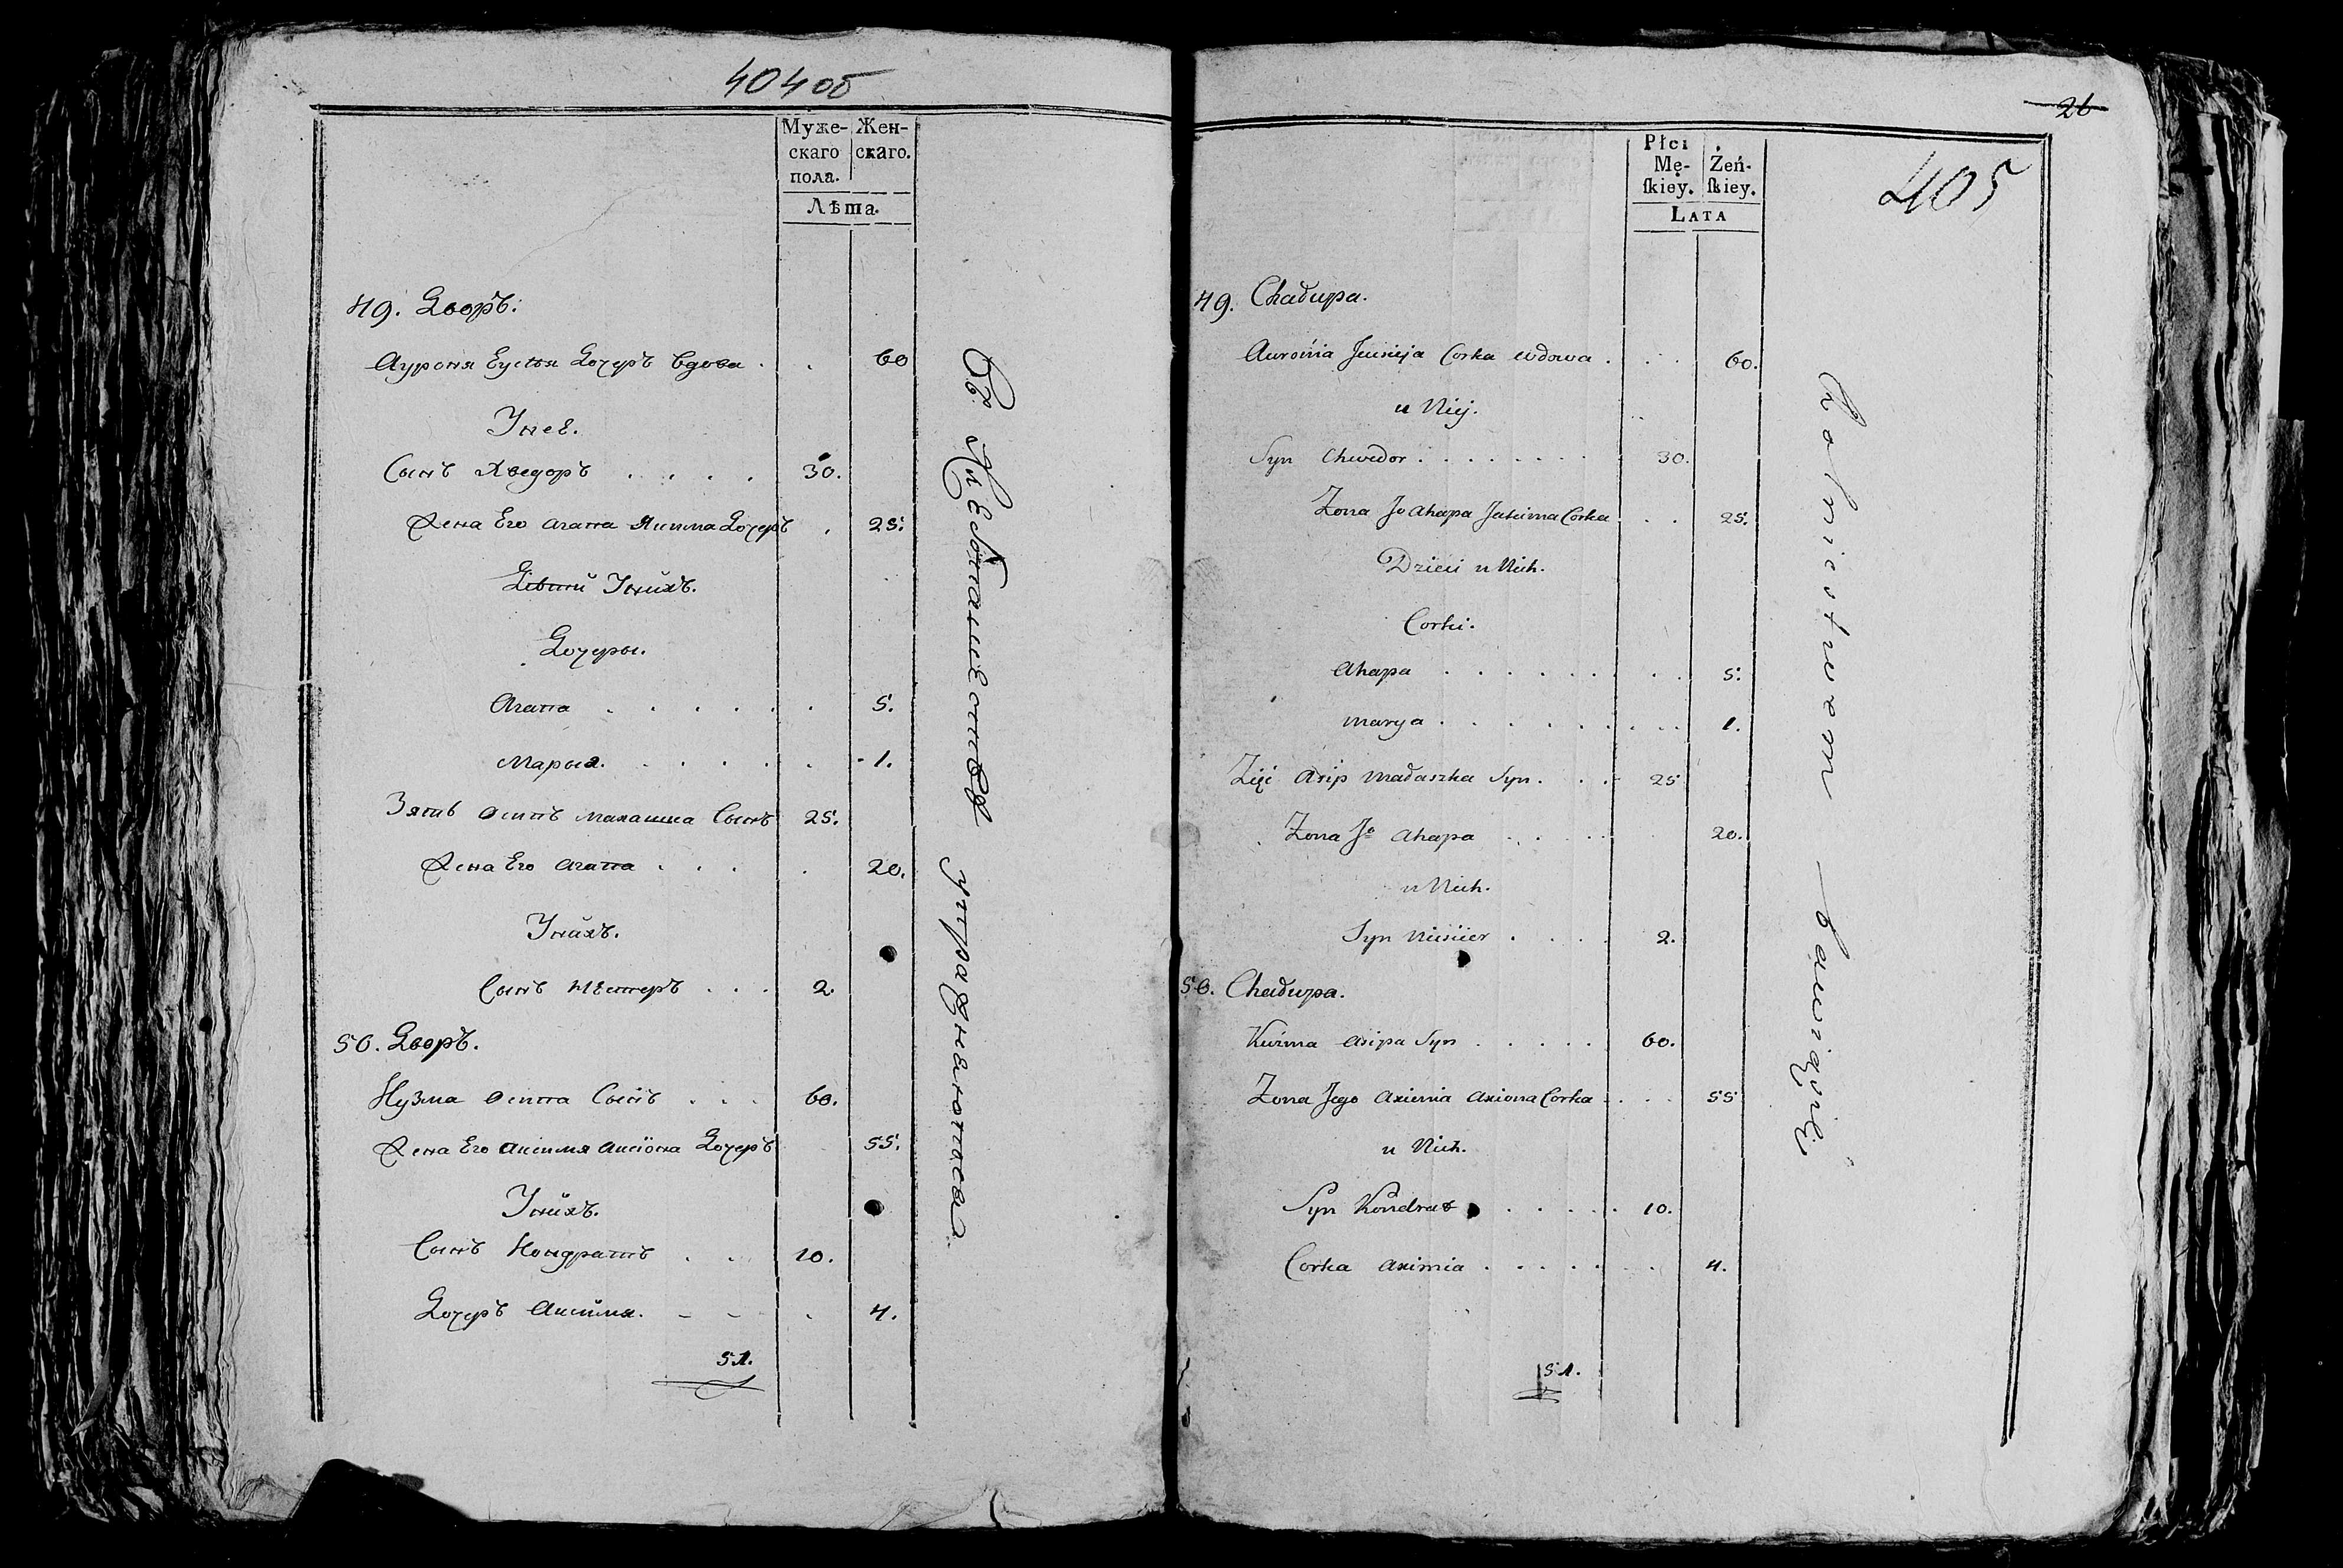 404 об
Муже- Жен-
скаго скаго.
пола.
Лѣта.
49. Дворъ.
Ауроня Еусѣя Дочеръ вдова . . 60
У нее.
Сынъ Хведоръ . . . . 30.
Жена Его Агапа Якима Дочеръ . 25.
Дѣти У нихъ.
Дочеры.
Агапа . . . . . . . 5.
Марья. . . . . . . 1.
Зять Осипъ Сынъ 25.
Жена Его Агапа . . . . 20.
У нихъ.
Сынъ . . . 2.
50. Дворъ.
Кузма Осипа Сынъ . . . 60.
Жена Его Аксимя Аксіона Дочеръ 55.
У нихъ.
Сынъ Кондратъ . . 10.
Дочеръ Аксимя. – – . 4.
51.
упражняются
26
405
Płci
Mę- Żeń-
ſkiey. ſkiey.
LATA
49. Chałupa.
Auronia Corka wdowa . . . 60.
u Niej.
Syn Chwedor . . . . . . . 30.
Zona Jo Ahapa Jakima Corka . . 25.
Dzieci u Nich.
Corki.
Ahapa . . . . . . . . 5.
Marya . . . . . . . . . 1.
Zięć Asip Syn . . . 25
Zona Jo Ahapa . . . . 20.
u Nich.
Syn . . . . 2.
50. Chałupa.
Kuźma Asipa Syn . . . . . 60.
Zona Jego Axiemia Axiona Corka . . . 55
u Nich.
Syn Kondrat . . . . . 10.
Corka Aximia . . . . . . 4.
51.
Rolnictwem bawią się